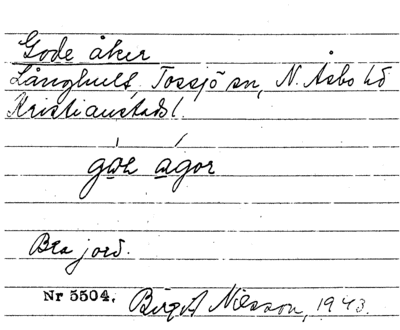 Gode åker
Långhult Tossjö sn, N. Åsbo hd
Kristianstads l.
Bra jord.
Nr 5504. Birgit Nilsson, 1943.